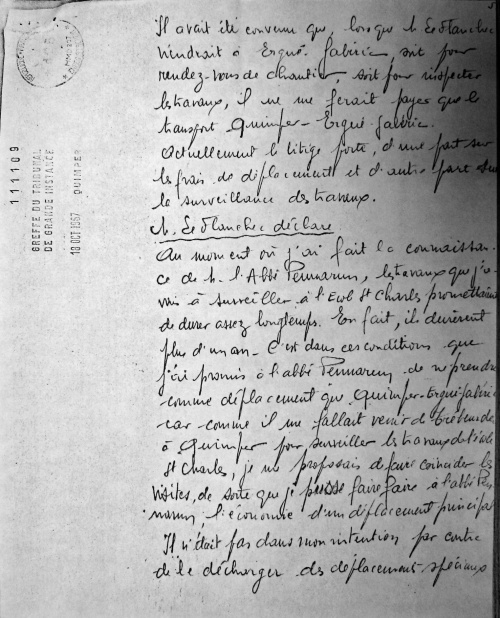 Il avait été convenu que, lorsque M. Le Flanchec
viendrait à Ergué-Gabéric, soit pour
rendez-vous de chantier, soit pour inspecter
les travaux, il ne me ferait payer que le
transport Quimper-Ergué Gabéric.
Actuellement le litige porte, d'une part sur
les frais de déplacement et d'autre part sur
la surveillance des travaux.
M. Le Flanchec déclare
Au moment où j'ai fait la connaissan-
ce de M. l'Abbé Pennarun, les travaux que j'a
à surveiller à l'Ecole St Charles promettaient
de durer assez longtemps. En fait, ils durèrent
plus d'un an - C'est dans ces conditions que
j'ai promis à l'abbé Pennarun de ne prendre
comme déplacement que Quimper-Ergué-Gabéric
car comme il me fallait venir de
à Quimper pour surveiller les travaux de l'école
St Charles, je me proposais de faire coincider les
visites, de sorte que je puisse faire faire à l'abbé Pen
narun, l'économie d'un déplacement principal
Il n'était pas dans mon intention par contre
de le décharger des déplacements spéciaux
111109
GREFFE DU TRIBUNAL
DE GRANDE INSTANCE
18 OCT 1967 QUIMPER